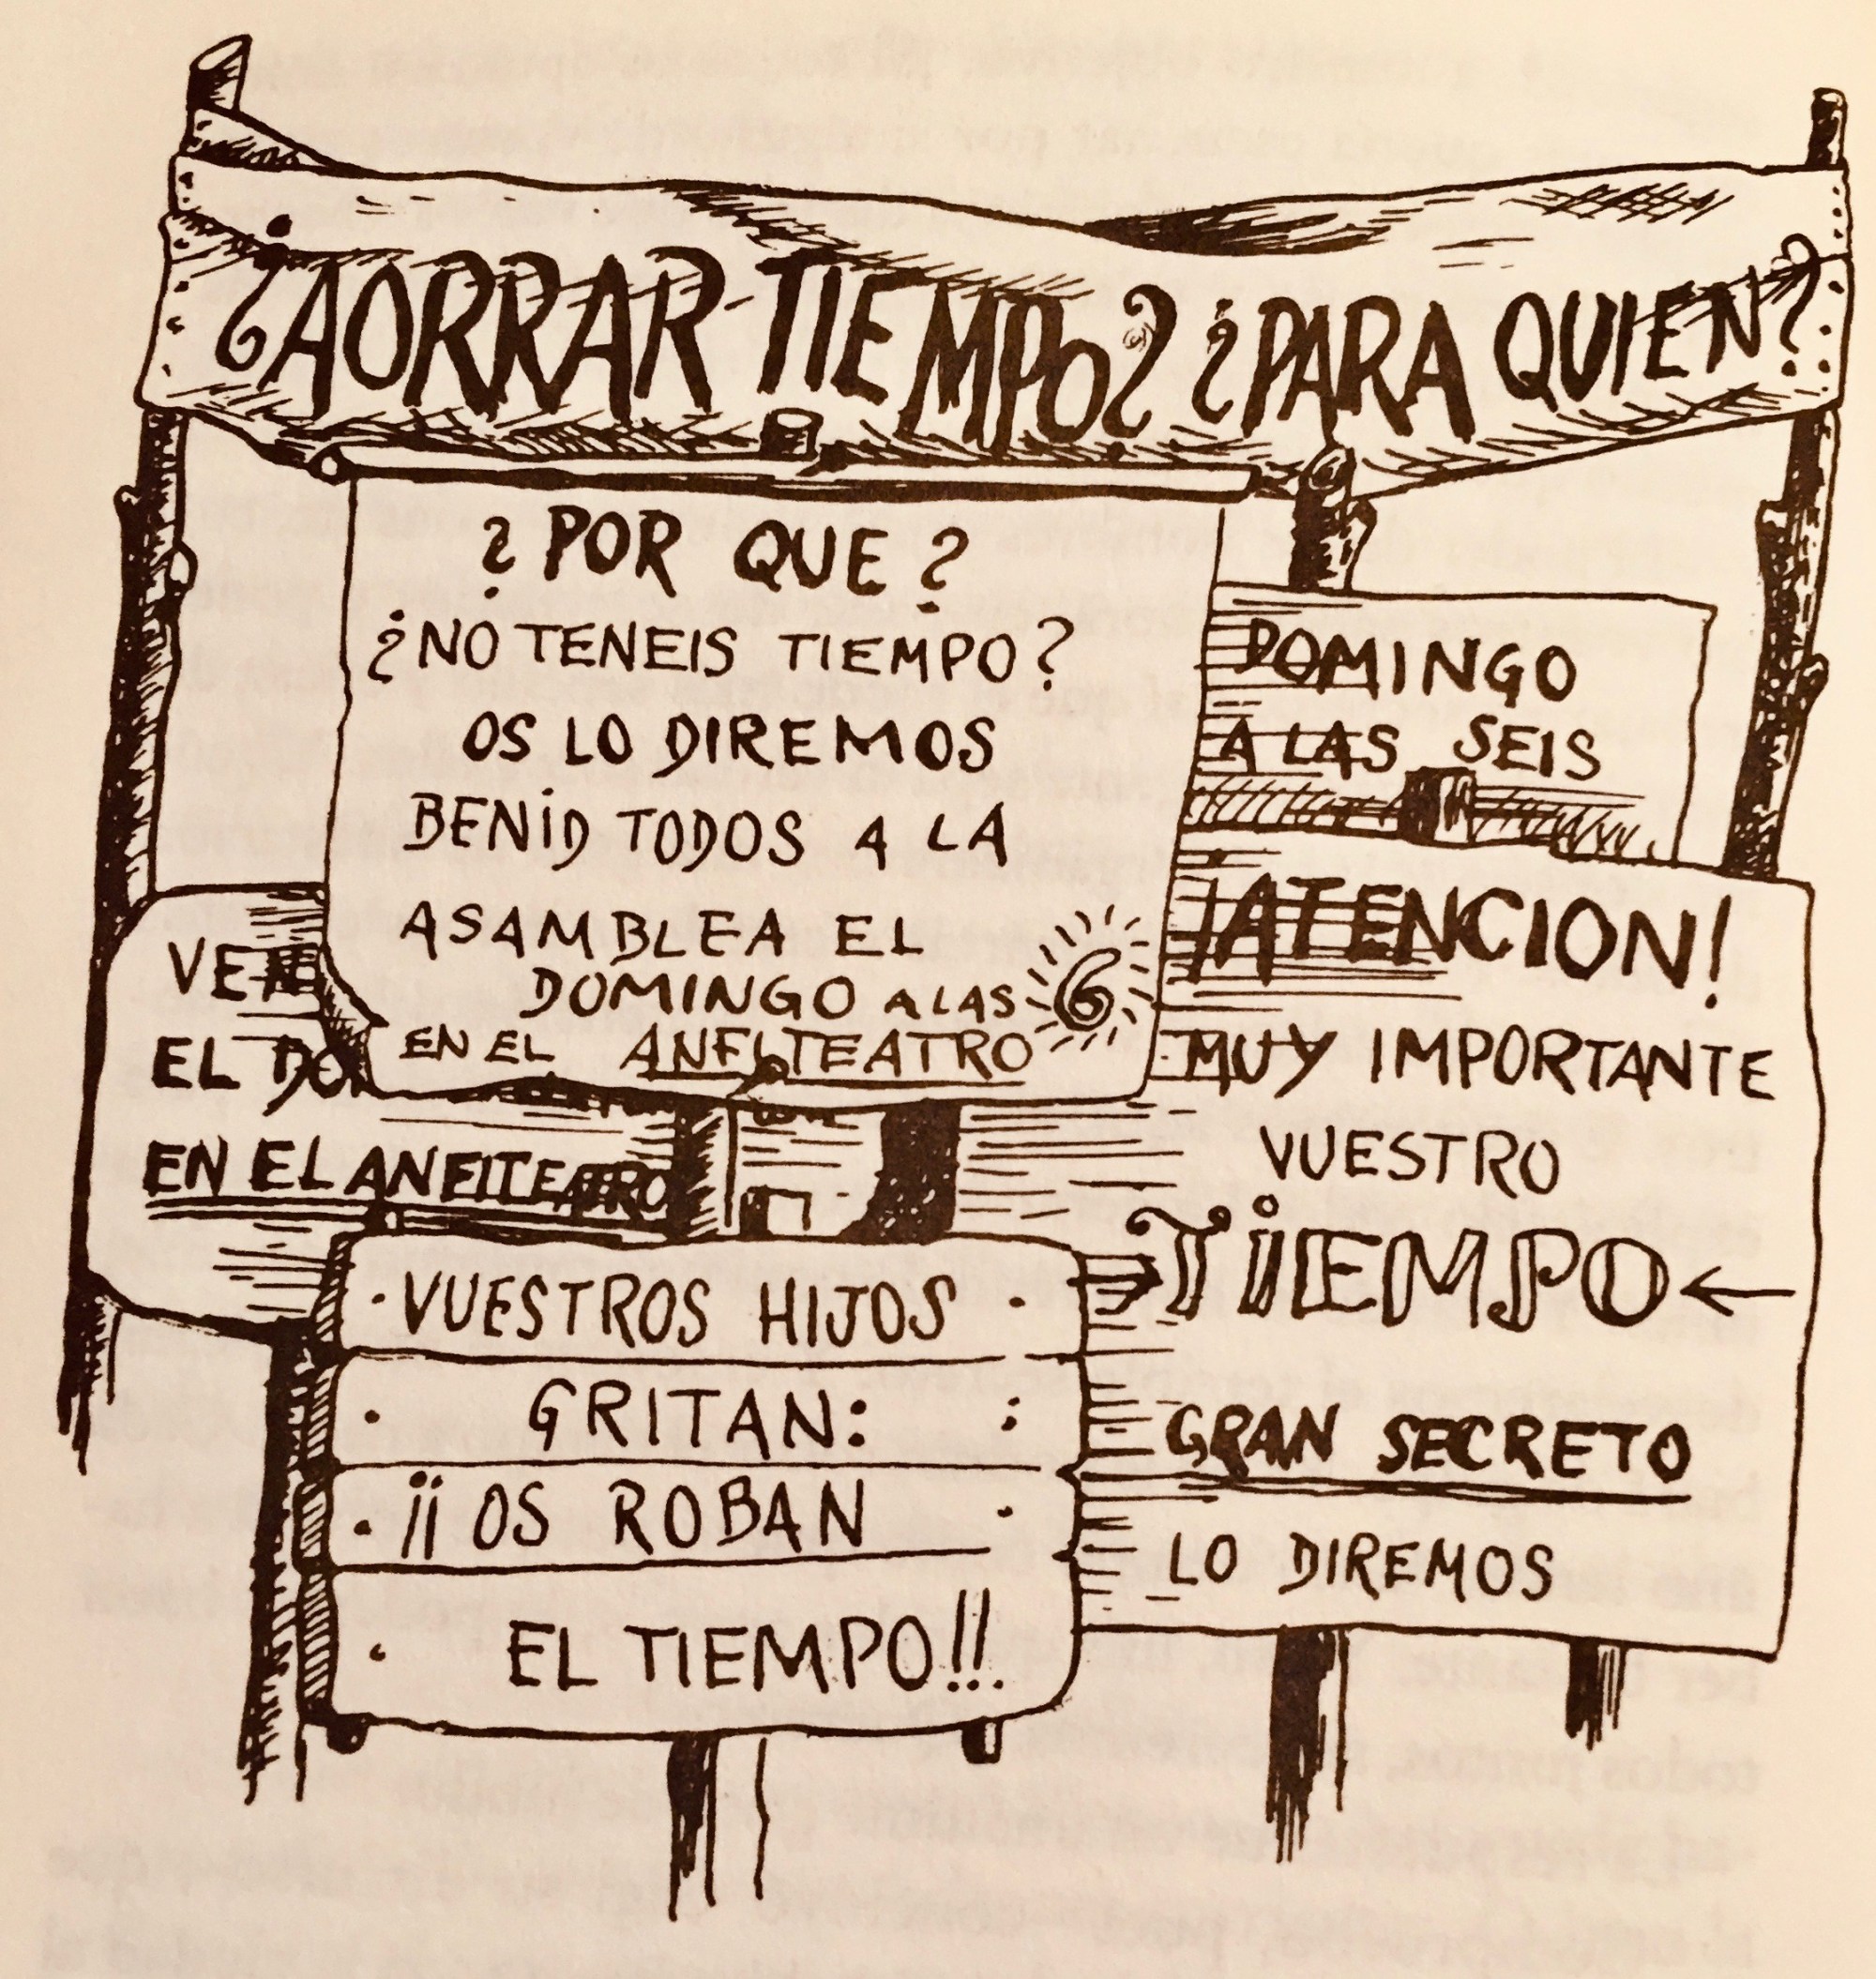 ¿AORRAR TIEMPO? ¿PARA QUIEN?
¿POR QUE?
¿NO TENEIS TIEMPO?
OS LO DIREMOS
BENID TODOS A LA
ASAMBLEA EL
DOMINGO A LAS 6
EN EL ANFITEATRO
DOMINGO
A LAS SEIS
¡ATENCION!
MUY IMPORTANTE
VUESTRO
TIEMPO
GRAN SECRETO
LO DIREMOS
VEN
EL DO
EN EL ANFITEATRO
VUESTROS HIJOS
GRITAN:
¡¡OS ROBAN
EL TIEMPO!!